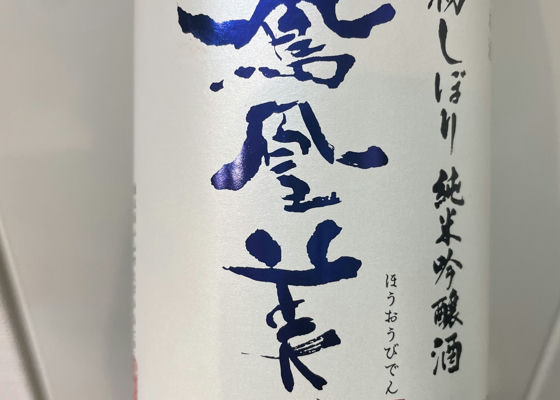 初しぼり 純米吟醸酒
鳳凰美
ほうおうびでん